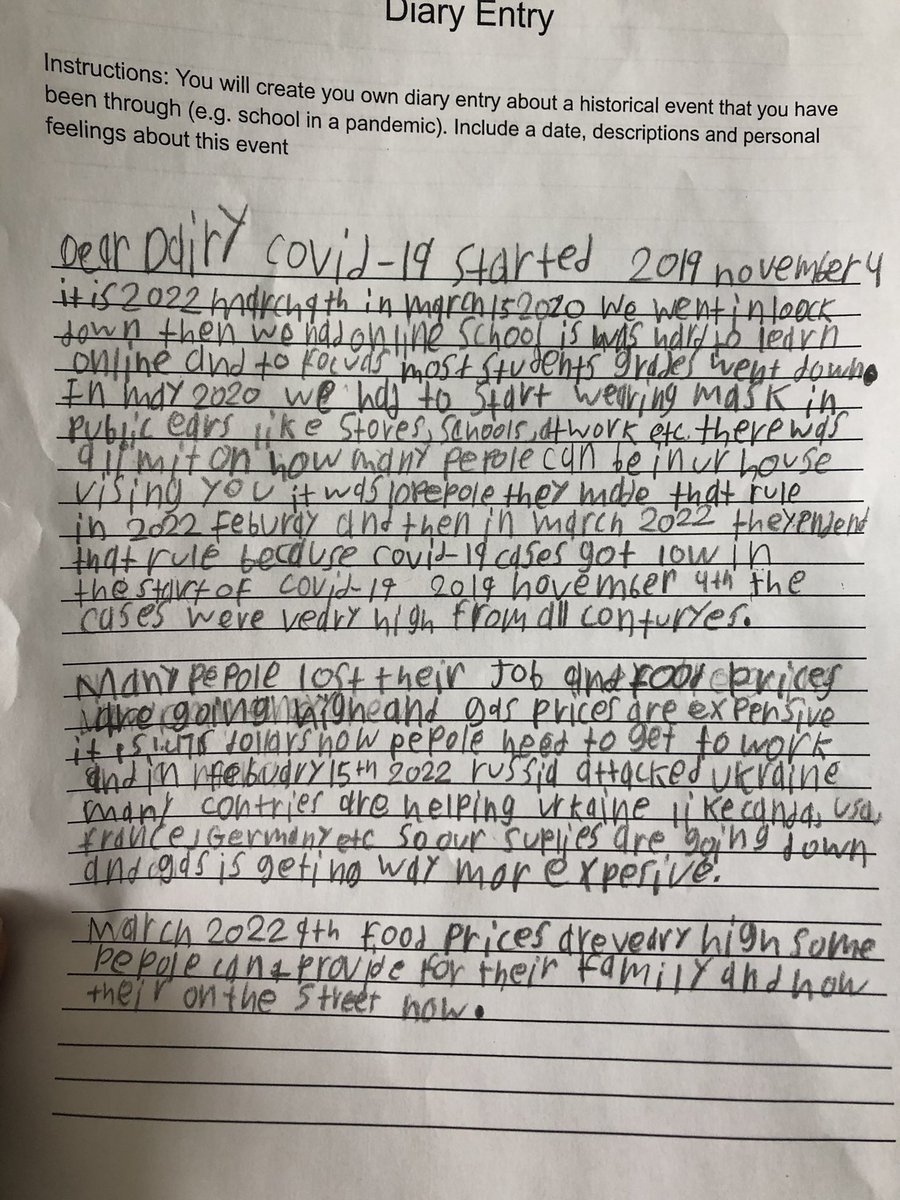 Diary Entry
Instructions: You will create you own diary entry about a historical event that you have
been through (e.g. school in a pandemic). Include a date, descriptions and personal
feelings about this event
Dear Ddiry covid-19 started 2019 november 4
it is 2022 march 9th in march 15 2020 we went in loock
down then we had online school is was hard to learn
online and to focuas most students grades went down.
In may 2020 we had to start wearing mask in
public ears like stores, schools, at work etc. there was
a limit on how many pepole can be in ur house
vising you it was 10 pepole they made that rule
in 2022 feburay and then in march 2022 they endend
that rule because covid-19 cases got low in
the start of covid-19 2019 november 4th the
cases were vedry high from all conturyes.
Many pepole lost their job and food prices
are going high and gas prices are expensive
it is dollars now pepole need to get to work
and in febuary 15th 2022 russia attacked ukraine
many contries are helping urkaine like canda, usa,
france, Germany etc so our suplies are going down
and gas is geting way mor expesive.
March 2022 9th food prices are veary high some
pepole cant provide for their family and now
their on the street now.